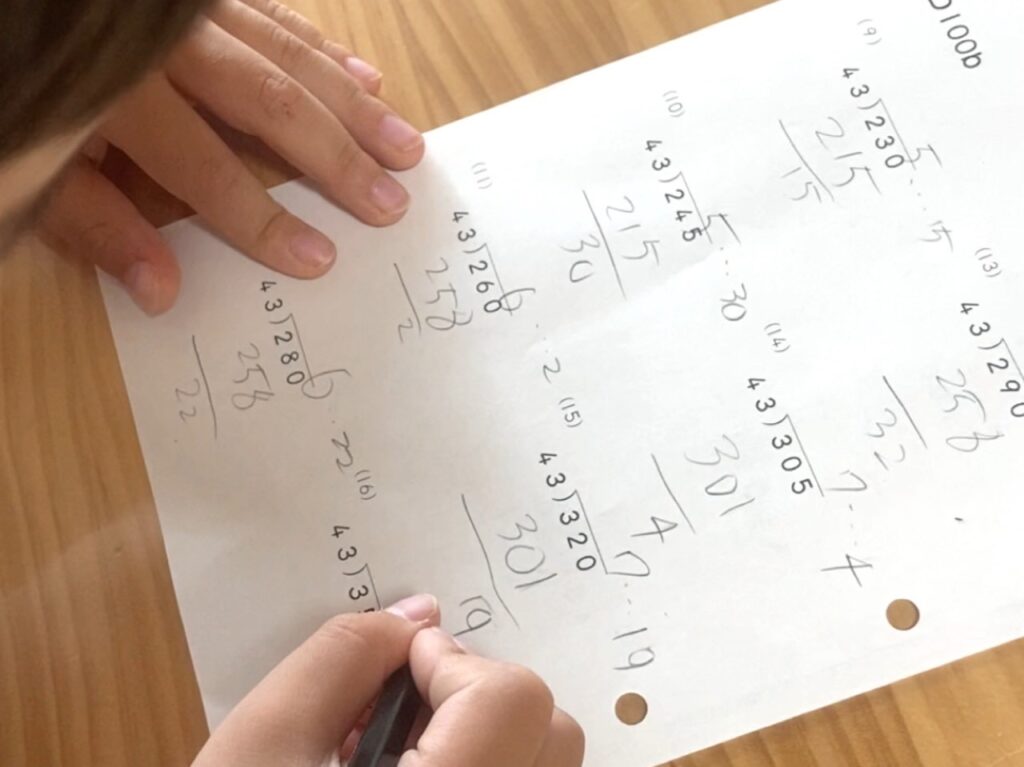 D100b
(9)
5...15
43)230
215
15
(10)
5...30
43)245
215
30
(11)
6...2
43)260
258
2
6...22
43)280
258
22
(13)
43)290
258
32
(14)
7...4
43)305
301
4
(15)
7...19
43)320
301
19
(16)
43)3